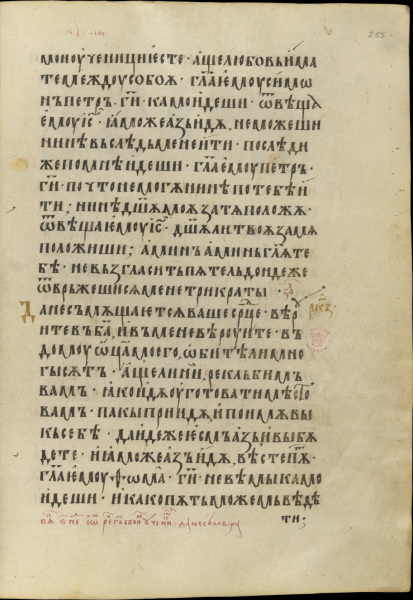 мои оученици есте · аще любовь има
те междоу собоѫ · гла емоу симѡ
нъ петръ · ги · камо идеши · ѿвѣща
емоу іс · ꙗможе азъ идѫ, не можеши
ннѣ въ слѣдъ мене ити · послѣди
же по мнѣ идеши · гла емоу петръ ·
ги · почто не могѫ ннѣ по тебѣ и
ти; ннѣ дшѫ моѫ за тѧ положѫ ·
ѿвѣща емоу іс · дшѫ твоѫ за мѧ
положиши; аминъ аминъ глѧ те
бѣ · не възгласитъ пѣтель дондеже
ѿвръжешисѧ мене трикраты ·
Да не съмѫщаетсѧ ваше срце · вѣроу
ите въ ба, и въ мене вѣроуите · въ
домоу ѡца моего, ѡбители мно
гы сѫтъ · аще ли ни, реклъ бимъ
вамъ · ꙗко идѫ оуготовати мѣсто
вамъ · пакы прииидѫ и поимѫ вы
къ себѣ · да идеже есмъ азъ и вы бѫ
дете · и ꙗможе азъ идѫ, вѣсте пѫ ·
гла емоу ѳома · ги · не вѣмы камо
идеши · и како пѫть можемъ вѣдѣ
ти;